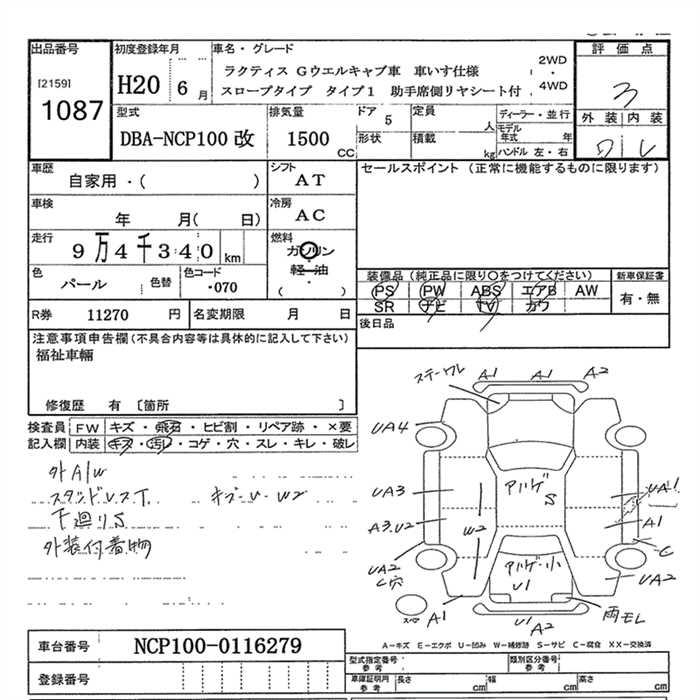 出品番号
[2159]
1087
初度登録年月
H20 6月
車名・グレード
ラクティス Gウエルキャブ車 車いす仕様
スロープタイプ タイプ1 助手席側リヤシート付
2WD
・
4WD
評価点
3
外装 内装
型式
DBA-NCP100 改
排気量
1500
CC
ドア
5
定員
人
形状
積載
kg
ディーラー・並行
モデル年式 年
ハンドル 左・右
車歴
自家用・( )
シフト
AT
セールスポイント (正常に機能するものに限ります)
車検
年 月( 日)
冷房
AC
走行
9万4千340 km
燃料
ガソリン
・
軽油
・
( )
色
パール
色替
色コード
・070
装備品(純正品に限り○をつけてください)
PS PW ABS エアB AW
SR ナビ TV カワ
新車保証書
有・無
R券 11270 円
名変期限 月 日
後日品
注意事項申告欄(不具合内容等は具体的に記入して下さい)
福祉車輛
修復歴 有 〔箇所 〕
検査員
記入欄
FW キズ・飛石・ヒビ割・リペア跡・×要
内装 キズ・汚レ・コゲ・穴・スレ・キレ・破レ
外A/W
キズ・U・W2
下廻りS
外装付着物
A1 A1 A2
UA4
UA3
A3.U2
W2
UA2
C穴
A1
S
UA1
A1
C
UA2
U1
U1
A2
両モL
スペア
車台番号 NCP100-0116279
登録番号
A-キズ E-エクボ U-凹み W-補修跡 S-サビ C-腐食 XX-交換済
型式指定番号
参考
類別区分番号
参考
車庫証明用
参考
長さ cm 幅 cm 高さ cm